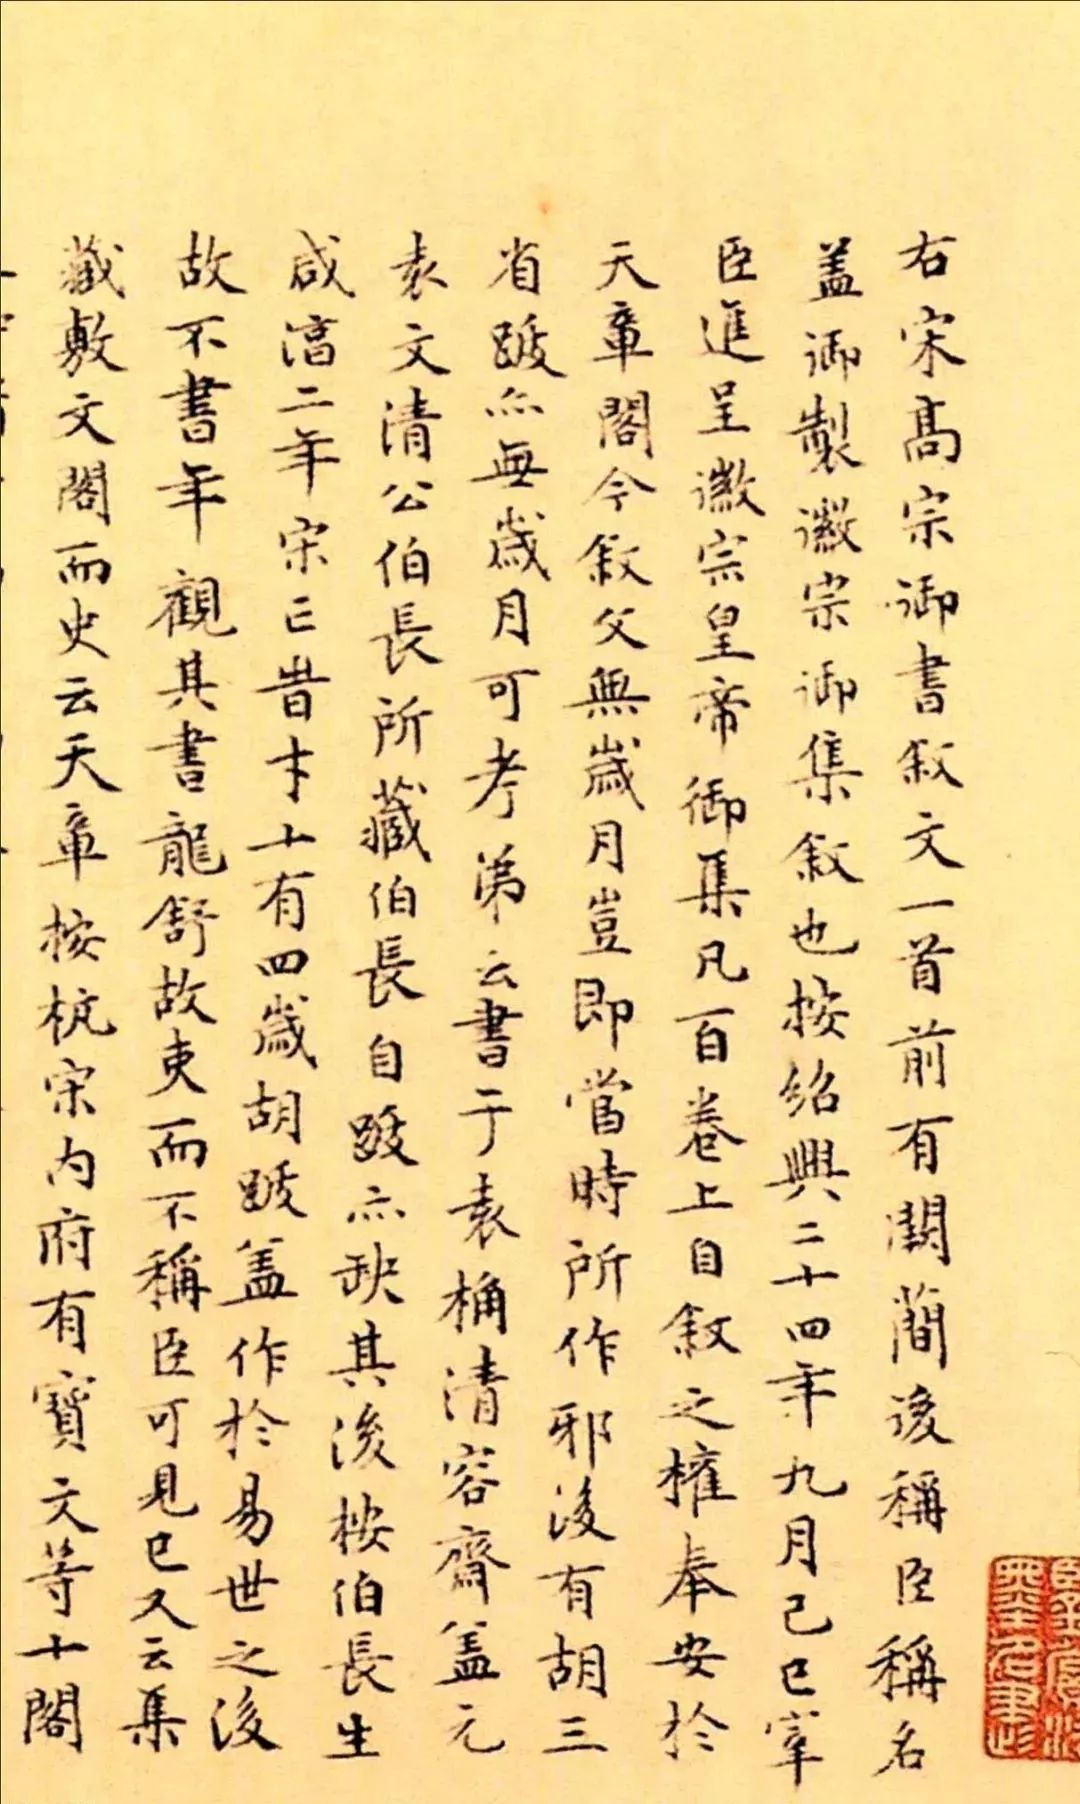 右宋髙宗御書叙文一首前有闕簡後稱臣稱名
盖御製徽宗御集叙也按紹興二十四年九月己巳宰
臣進呈徽宗皇帝御集凡百卷上自叙之權奉安於
天章閣今叙文無歲月豈即當時所作邪後有胡三
省跋亦無歲月可考弟云書于袁桷清容齋盖元
袁文清公伯長所藏伯長自跋亦缺其後按伯長生
咸淳二年宋亡時才十有四歲胡跋盖作於易世之後
故不書年觀其書龍舒故吏而不稱臣可見已又云集
藏敷文閣而史云天章按杭宋内府有寶文等十閣